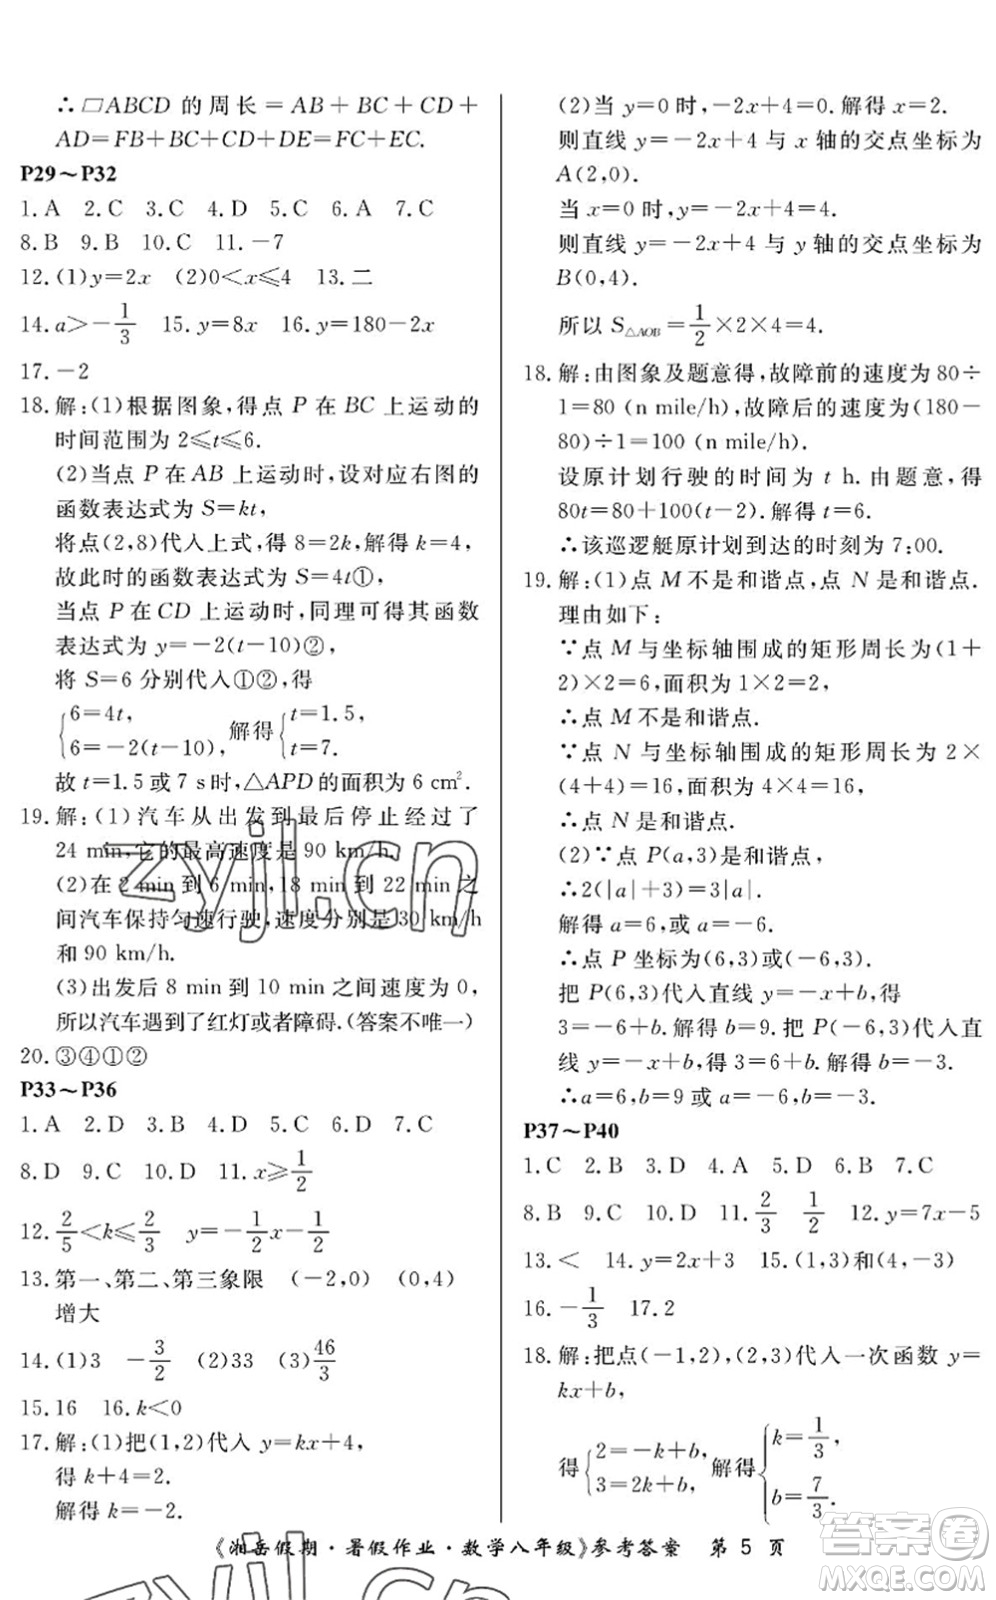 ∴▱ABCD 的周长=AB+BC+CD+
AD=FB+BC+CD+DE=FC+EC.
P29～P32
1.A 2.C 3.C 4.D 5.C 6.A 7.C
8.B 9.B 10.C 11.-7
12.(1)y=2x (2)0<x≤4 13.二
14.a>-1/3 15.y=8x 16.y=180-2x
17.-2
18.解:(1)根据图象,得点 P 在 BC 上运动的
时间范围为 2≤t≤6.
(2)当点 P 在 AB 上运动时,设对应右图的
函数表达式为 S=kt,
将点(2,8)代入上式,得 8=2k,解得 k=4,
故此时的函数表达式为 S=4t①,
当点 P 在 CD 上运动时,同理可得其函数
表达式为 y=-2(t-10)②,
将 S=6 分别代入①②,得
{6=4t, 6=-2(t-10) 解得{t=1.5, t=7.
故 t=1.5 或 7 s时,△APD 的面积为 6 cm².
19.解:(1)汽车从出发到最后停止经过了
24 min,它的最高速度是 90 km/h.
(2)在 2 min 到 6 min,18 min 到 22 min 之
间汽车保持匀速行驶,速度分别是 30 km/h
和 90 km/h.
(3)出发后 8 min 到 10 min 之间速度为 0,
所以汽车遇到了红灯或者障碍.(答案不唯一)
20.③④①②
P33～P36
1.A 2.D 3.B 4.D 5.D 6.D 7.C
8.D 9.C 10.D 11.x≥1/2
12.2/5<k≤2/3 y=-1/2x-1/2
13.第一、第二、第三象限 (-2,0) (0,4)
增大
14.(1)3 -3/2 (2)33 (3)46/3
15.16 16.k<0
17.解:(1)把(1,2)代入 y=kx+4,
得 k+4=2.
解得 k=-2.
(2)当 y=0 时,-2x+4=0.解得 x=2.
则直线 y=-2x+4 与 x 轴的交点坐标为
A(2,0).
当 x=0 时,y=-2x+4=4.
则直线 y=-2x+4 与 y 轴的交点坐标为
B(0,4).
所以 S△AOB=1/2×2×4=4.
18.解:由图象及题意得,故障前的速度为 80÷
1=80 (n mile/h),故障后的速度为(180-
80)÷1=100 (n mile/h).
设原计划行驶的时间为 t h.由题意,得
80t=80+100(t-2).解得 t=6.
∴该巡逻艇原计划到达的时刻为 7:00.
19.解:(1)点 M 不是和谐点,点 N 是和谐点.
理由如下:
∵点 M 与坐标轴围成的矩形周长为(1+
2)×2=6,面积为 1×2=2,
∴点 M 不是和谐点.
∵点 N 与坐标轴围成的矩形周长为 2×
(4+4)=16,面积为 4×4=16,
∴点 N 是和谐点.
(2)∵点 P(a,3)是和谐点,
∴2(|a|+3)=3|a|.
解得 a=6,或 a=-6.
∴点 P 坐标为(6,3)或(-6,3).
把 P(6,3)代入直线 y=-x+b,得
3=-6+b.解得 b=9.把 P(-6,3)代入直
线 y=-x+b,得 3=6+b.解得 b=-3.
∴a=6,b=9 或 a=-6,b=-3.
P37～P40
1.C 2.B 3.D 4.A 5.D 6.B 7.C
8.B 9.C 10.D 11.2/3 1/2 12.y=7x-5
13.< 14.y=2x+3 15.(1,3)和(4,-3)
16.-1/3 17.2
18.解:把点(-1,2),(2,3)代入一次函数 y=
kx+b,
得{2=-k+b, 3=2k+b, 解得{k=1/3, b=7/3.
《湘岳假期·暑假作业·数学八年级》参考答案 第 5 页
zyjl.cn
zyjl.cn
作业精灵
MXQE.COM